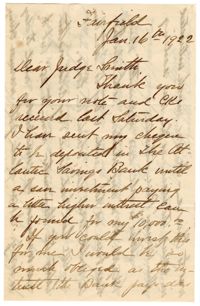 Fairfield
Jan. 16th 1922
Dear Judge Smith
Thank you
for your note and Ck
received last Saturday.
I have sent my cheque
to be deposited in The At
lantic Savings Bank until
a sure investment paying
a little higher interest can
be found for my
If you could invest this
for me I would be so
much obliged as the
the Bank pays